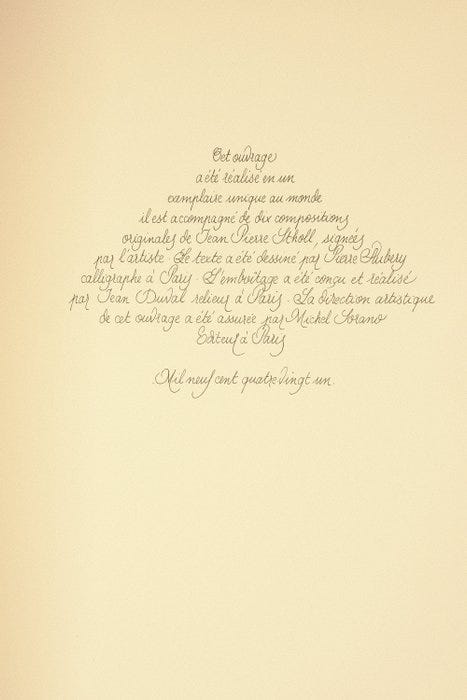 Cet ouvrage
a été réalisé en un
exemplaire unique au monde
il est accompagné de dix compositions
originales de Jean Pierre Stholl, signées
par l'artiste. Le texte a été dessiné par Pierre Aubery
calligraphe à Paris. L'emboîtage a été conçu et réalisé
par Jean Duval relieur à Paris. La direction artistique
de cet ouvrage a été assurée par Michel Sorano
Editeur à Paris
.Mil neuf cent quatre vingt un.